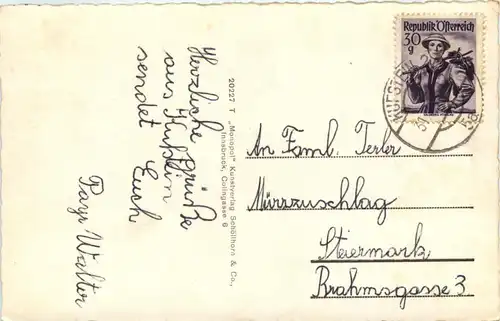 Herzliche Grüße
aus Kufstein
sendet Euch
Payr Walter
20227 T „Monopol" Kunstverlag Schöllhorn & Co.,
Innsbruck, Colingasse 6
Republik Österreich
30
g
KUFSTEIN
An Famil. Terler
Mürzzuschlag
Steiermark
Brahmsgasse 3